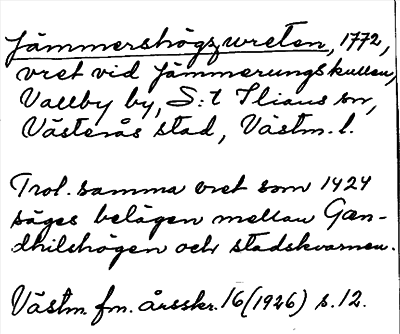 Jämmershögsvreten, 1772,
vret vid Jämmerungskullen,
Vallby by, S:t Ilians sn,
Västerås stad, Västm. l.
Trol. samma vret som 1424
säges belägen mellan Gan-
dhilshögen och stadskvarnen.
Västm. fm. årsskr. 16 (1926) s. 12.